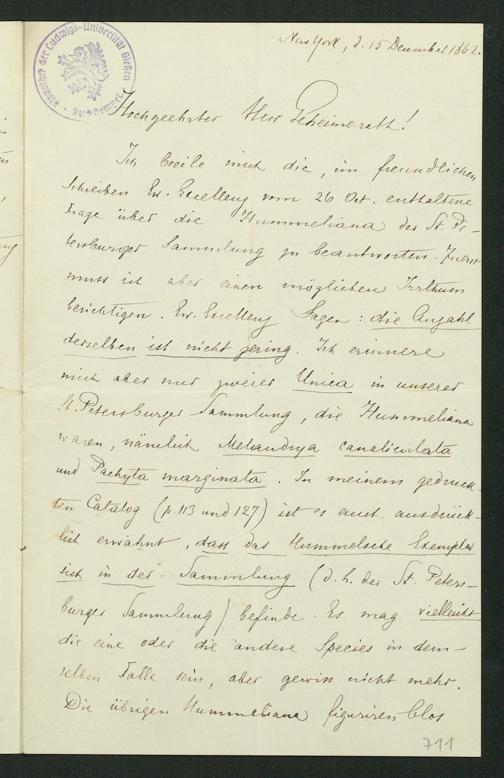 New York, d. 15 December 1862.
Bibliothek der Ludwigs-Universität Gießen
Hochgeehrter Herr Geheimerath!
Ich beeile mich die, im freundlichen
Schreiben Ew. Excellenz vom 26 Oct. enthaltene
Frage über die Hummeliana der St. Pe-
tersburger Sammlung zu beantworten. Zuerst
muss ich aber einen möglichen Irrthum
berichtigen. Ew. Excellenz sagen: die Anzahl
derselben ist nicht gering. Ich erinnere
mich aber nur zweier Unica in unserer
St. Petersburger Sammlung, die Hummeliana
waren, nämlich Melandrya canaliculata
und Pachyta marginata. In meinem gedruck-
ten Catalog (p. 113 und 127) ist es auch ausdrück-
lich erwähnt, dass das Hummelsche Exemplar
sich in der Sammlung (d. h. der St. Peters-
burger Sammlung) befinde. Es mag vielleicht
die eine oder die andere Species in dem-
selben Falle sein, aber gewiss nicht mehr.
Die übrigen Hummeliana figuriren blos
711